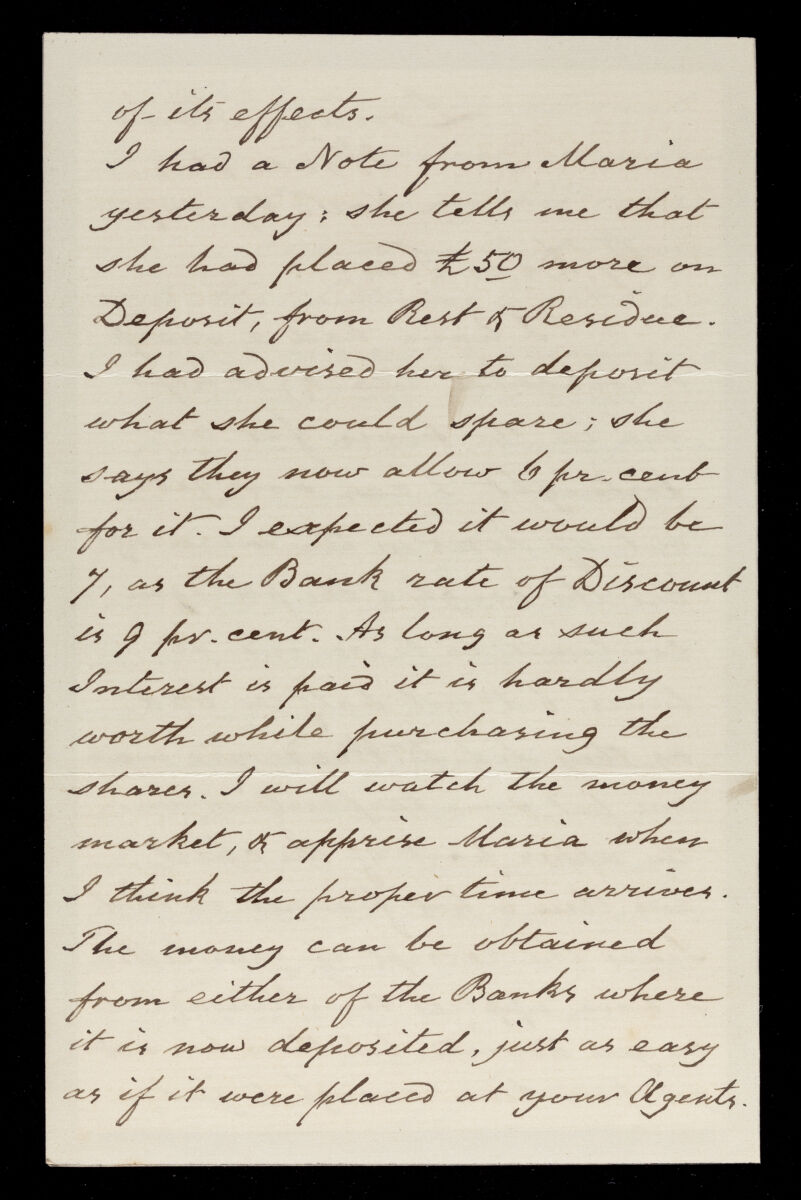 of its effects.
I had a Note from Maria
yesterday; she tells me that
she had placed £50 more on
Deposit, from Rest & Residue.
I had advised her to deposit
what she could spare; she
says they now allow 6 pr. cent
for it. I expected it would be
7, as the Bank rate of Discount
is 9 pr. cent. As long as such
Interest is paid it is hardly
worth while purchasing the
shares. I will watch the money
market, & apprise Maria when
I think the proper time arrives.
The money can be obtained
from either of the Banks where
it is now deposited, just as easy
as if it were placed at your Agents.